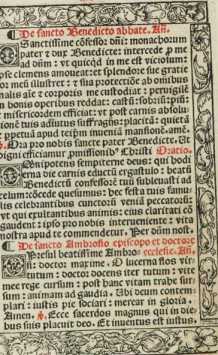 De sancto Benedicto abbate. Añ.
Sanctissime cōfessor dñi: monachorum
pater ⁊ dux Benedicte: intercede ꝓ me
ad dñm: vt quicqd in me est viciorum
ipse clemens amoueat: et splendore sue gratie
cor meū illustret: ⁊ sua protectiōe ab omnibus
malis aīe ⁊ corporis me custodiat: ⁊ peruigilē
in bonis operibus reddat: castū: sobriū: piū:
⁊ misericordem efficiat: vt post carnis absolu
tionē tuis adiutus suffragiis: placita: quietā
⁊ ppetuā apud teipm inueniā mansionē. amē.
℣. Ora pro nobis sancte pater Benedicte. ℟.
Digni efficiamur ꝓmissionib⁹ Christi. Oratio.
Omnipotens sempiterne deus: qui hodi
erna die carnis eductū ergastulo: beatū
Benedictū confessorē tuū subleuasti ad
celum: concede quesumus: hec festa tuis famu
lis celebrantibus cunctorū veniā peccatorū:
vt qui exultantibus animis: eius claritati cō
gaudent: ipso pro nobis interueniente: vita
nostra apud te commendetur. Per dñm nost.
De sancto Ambrosio episcopo et doctore
Presul beatissime Ambrosi ecclesie. Añ.
dei: doctor maxime. O lucerna flos vir
tutum: doctor docens iter tutum: vite
mee rege cursum: post hanc vitam trabe sur
sum: animam ad gaudia. Ubi deum contem
plari: iustis pie sociari: mercar in gloria.
Amen. ℣. Ecce sacerdos magnus qui in die
bus suis placuit deo. Et inuentus est iustus.